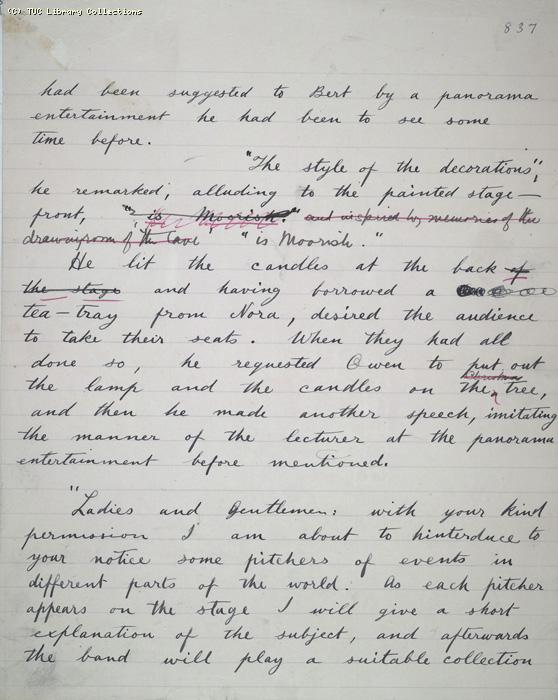 (C) TUC Library Collections
837
had been suggested to Bert by a panorama
entertainment he had been to see some
time before.
"The style of the decorations",
he remarked, alluding to the painted stage-
front, "is Moorish." and inspired by memories of the
drawingroom of the Cave "is Moorish."
He lit the candles at the back of
the stage and having borrowed a
tea-tray from Nora, desired the audience
to take their seats. When they had all
done so, he requested Owen to put out
the lamp and the candles on the tree,
and then he made another speech, imitating
the manner of the lecturer at the panorama
entertainment before mentioned.
"Ladies and Gentlemen: with your kind
permission I am about to hinterduce to
your notice some pitchers of events in
different parts of the world. As each pitcher
appears on the stage I will give a short
explanation of the subject, and afterwards
the band will play a suitable collection